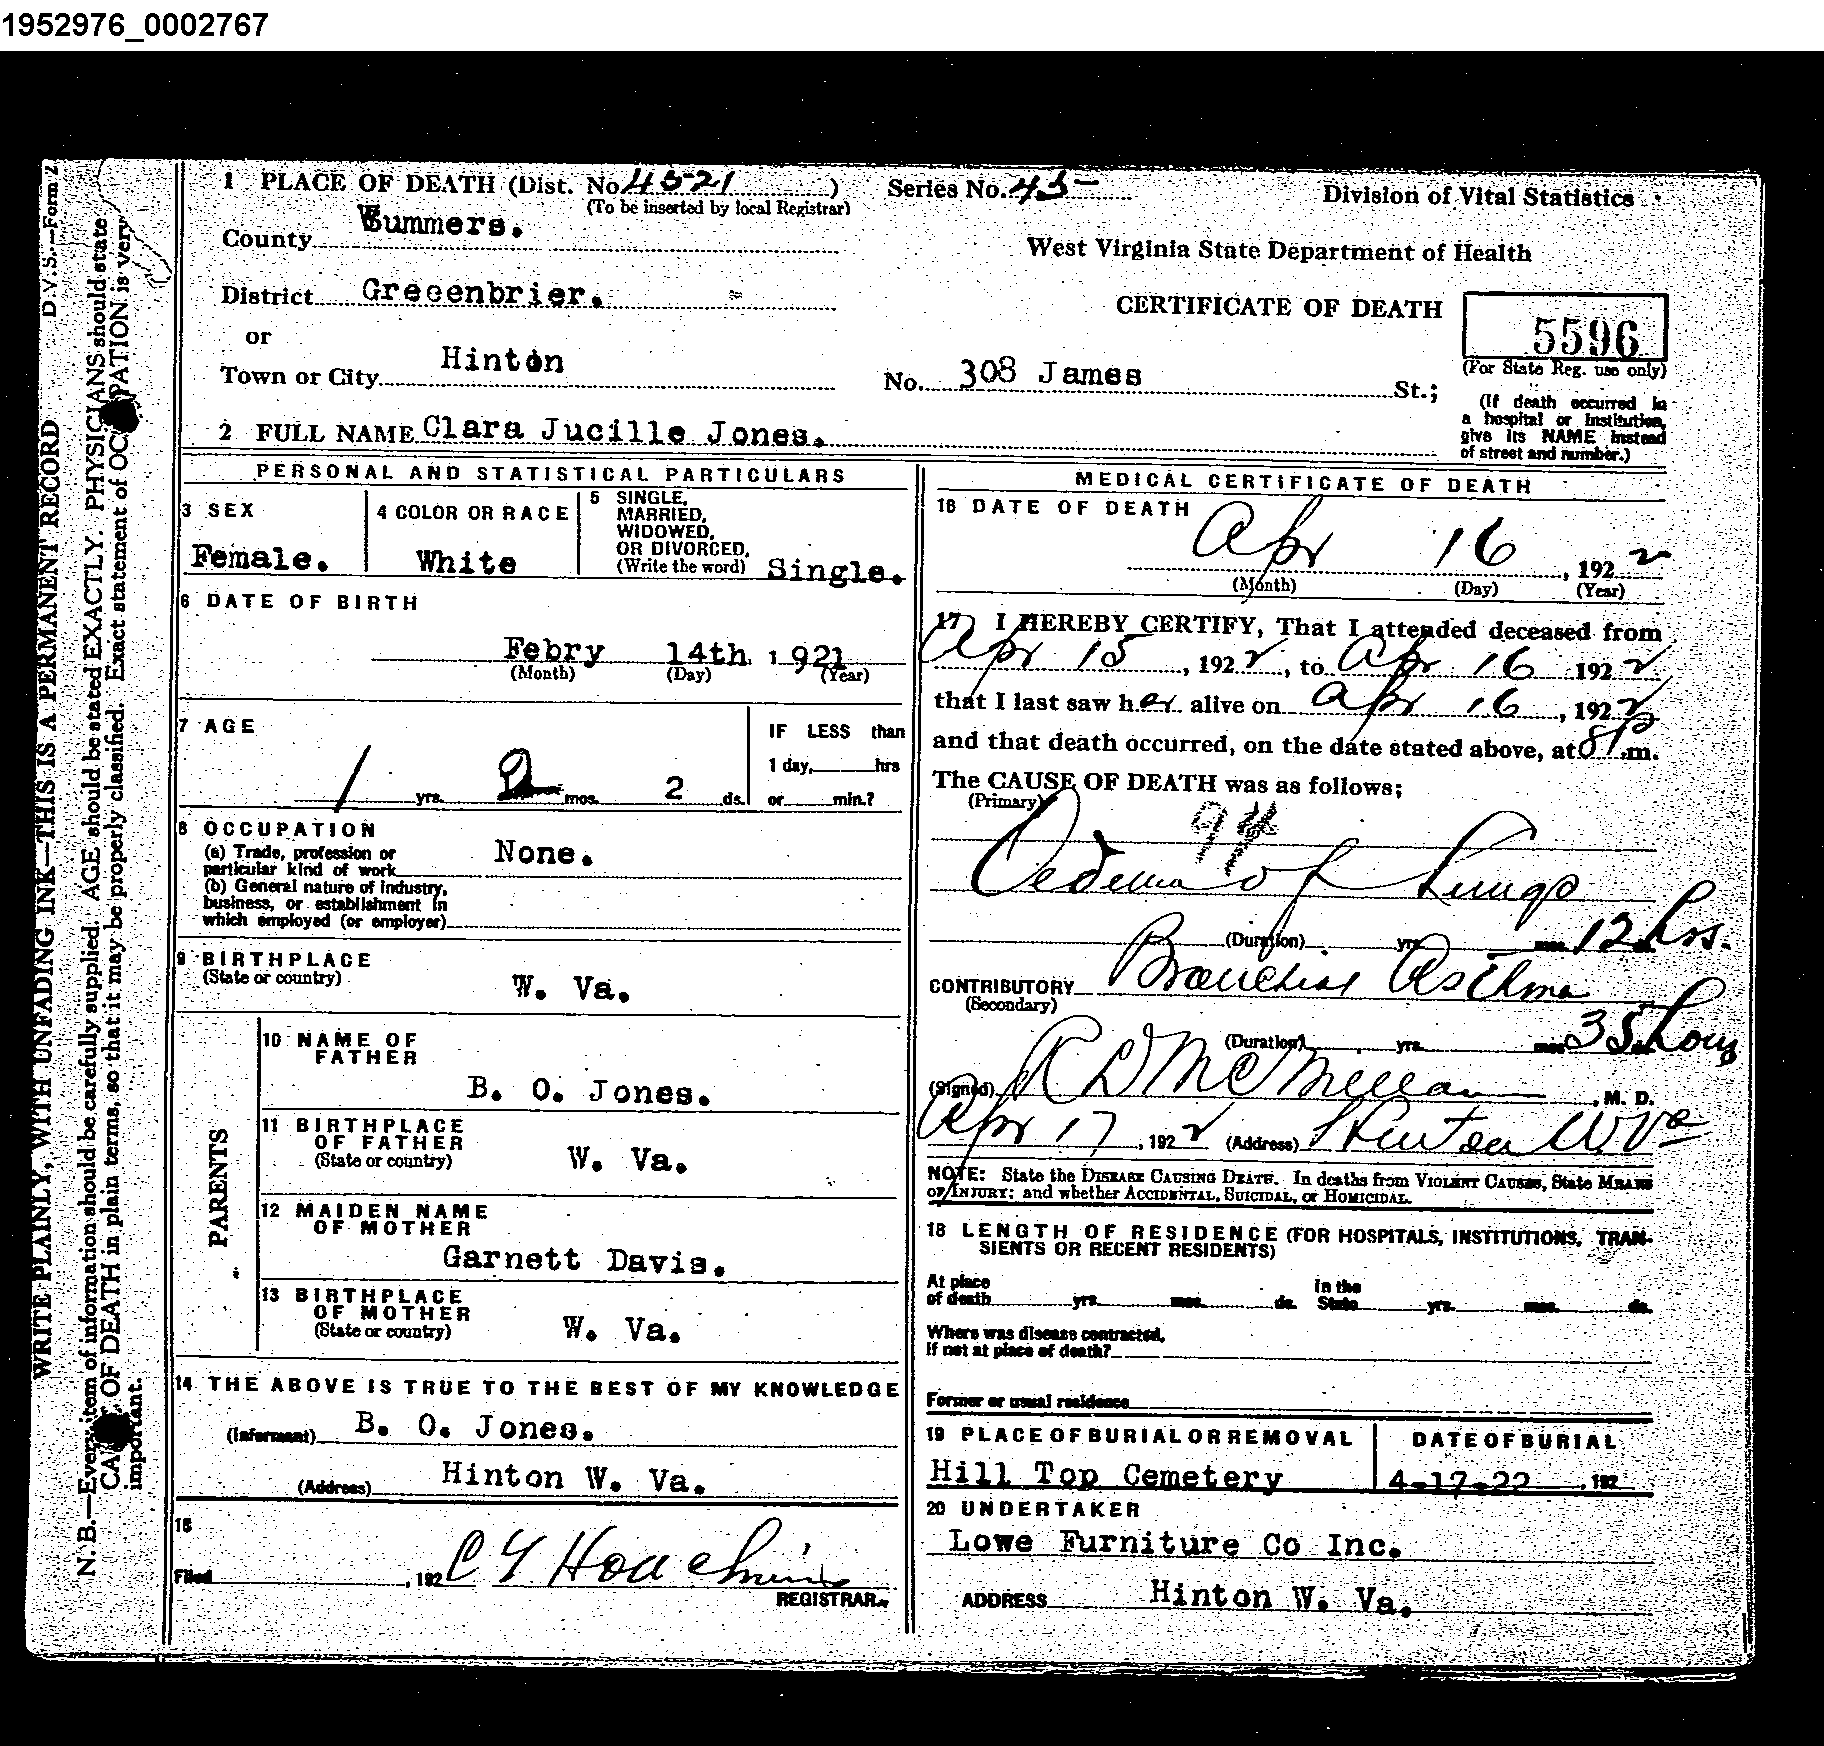 1952976_0002767
D.V.S.—Form 2
WRITE PLAINLY, WITH UNFADING INK—THIS IS A PERMANENT RECORD
N. B.—Every item of information should be carefully supplied. AGE should be stated EXACTLY. PHYSICIANS should state
OF DEATH in plain terms, so that it may be properly classified. Exact statement of OCCUPATION is very
important.
1 PLACE OF DEATH (Dist. No. 4521 ) Series No. 45
(To be inserted by local Registrar)
Division of Vital Statistics
County Summers.
West Virginia State Department of Health
District Greeenbrier.
CERTIFICATE OF DEATH
5596
(For State Reg. use only)
or
Town or City Hinton
No. 308 James St.;
(If death occurred in
a hospital or Institution,
give its NAME instead
of street and number.)
2 FULL NAME Clara Jucille Jones.
PERSONAL AND STATISTICAL PARTICULARS
3 SEX
Female.
4 COLOR OR RACE
White
5 SINGLE,
MARRIED,
WIDOWED,
OR DIVORCED,
(Write the word) Single.
6 DATE OF BIRTH
Febry 14th, 1921
(Month) (Day) (Year)
7 AGE
1 yrs. 2 mos. 2 ds.
IF LESS than
1 day, hrs
or min.?
8 OCCUPATION
(a) Trade, profession or
particular kind of work None.
(b) General nature of Industry,
business, or establishment in
which employed (or employer)
9 BIRTHPLACE
(State or country) W. Va.
PARENTS
10 NAME OF
FATHER
B. O. Jones.
11 BIRTHPLACE
OF FATHER
(State or country) W. Va.
12 MAIDEN NAME
OF MOTHER
Garnett Davis.
13 BIRTHPLACE
OF MOTHER
(State or country) W. Va.
14 THE ABOVE IS TRUE TO THE BEST OF MY KNOWLEDGE
(Informant) B. O. Jones.
(Address) Hinton W. Va.
15
Filed , 192 REGISTRAR
MEDICAL CERTIFICATE OF DEATH
16 DATE OF DEATH
Apr 16, 1922
(Month) (Day) (Year)
17 I HEREBY CERTIFY, That I attended deceased from
Apr 15, 1922, to Apr 16 1922
that I last saw her alive on Apr 16, 1922
and that death occurred, on the date stated above, at 8 P.m.
The CAUSE OF DEATH was as follows;
(Primary)
Oedema of Lungs
(Duration) yrs. mos. 12 hrs.
CONTRIBUTORY Bronchial Asthma
(Secondary)
(Duration) yrs. mos. 35 hours
(Signed) R D McMillan, M. D.
Apr 17, 1922 (Address) Hinton W. Va
NOTE: State the DISEASE CAUSING DEATH. In deaths from VIOLENT CAUSES, State MEANS
OF INJURY; and whether ACCIDENTAL, SUICIDAL, or HOMICIDAL.
18 LENGTH OF RESIDENCE (FOR HOSPITALS, INSTITUTIONS, TRAN-
SIENTS OR RECENT RESIDENTS)
At place In the
of death yrs. mos. ds. State yrs. mos. ds.
Where was disease contracted,
If not at place of death?
Former or usual residence
19 PLACE OF BURIAL OR REMOVAL
Hill Top Cemetery
DATE OF BURIAL
4-17-22 , 192
20 UNDERTAKER
Lowe Furniture Co Inc.
ADDRESS Hinton W. Va.